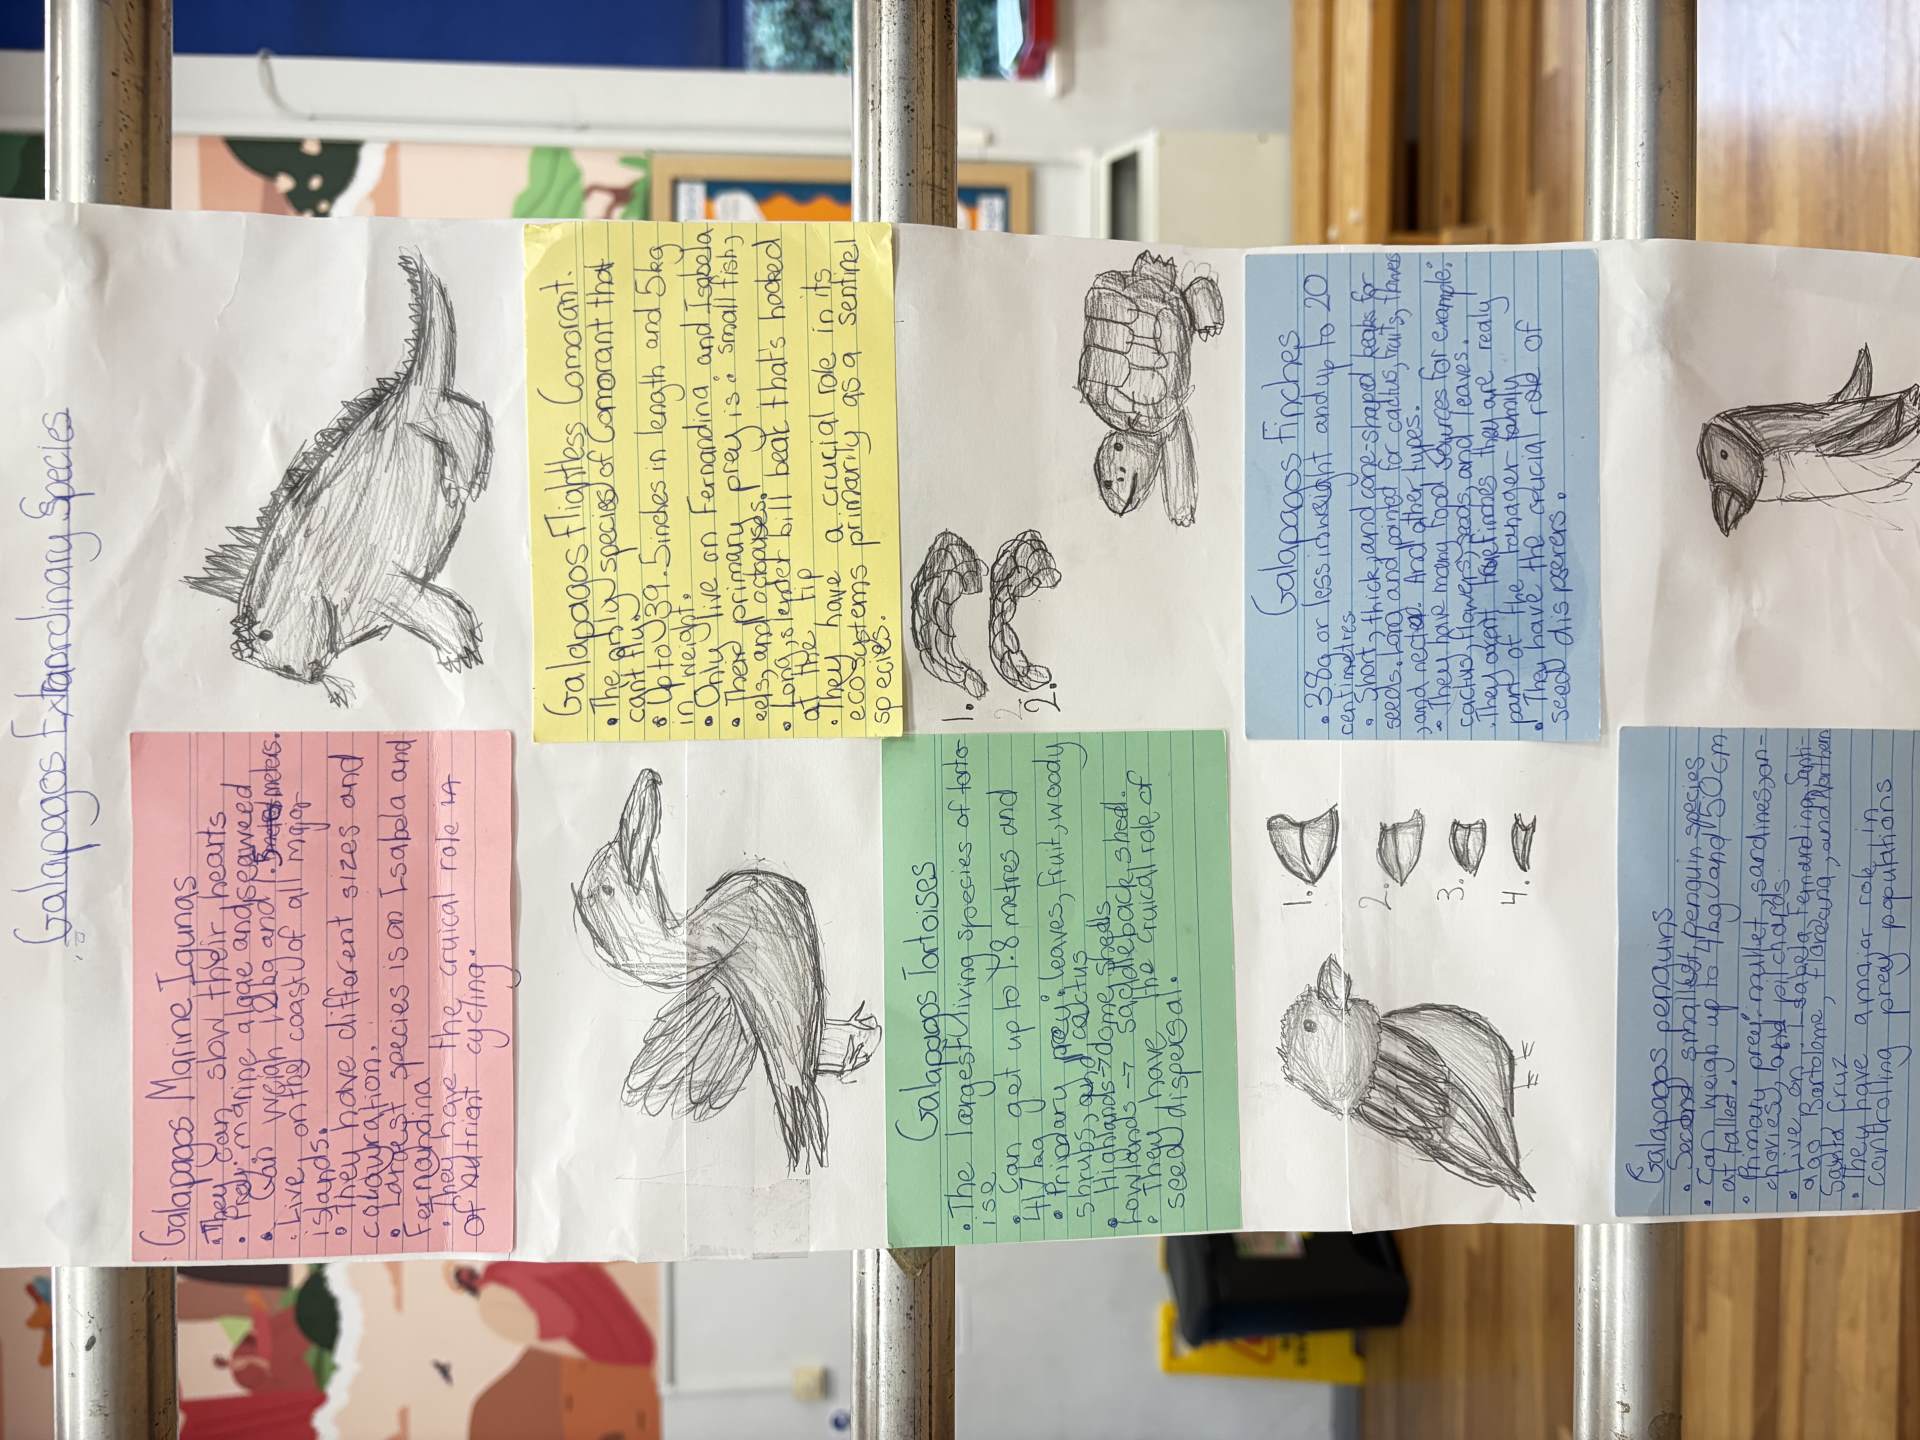 Galapagos Extraordinary Species
Galapagos Marine Igunas
• They can slow their hearts
• Prey: marine algae and seaweed
• Can weigh 12kg and 1.5 meters.
• Live on the coast of all major
islands.
• They have different sizes and
colouration.
• Largest species is on Isabela and
Fernandina
• They have the cruical role
of nutriant cycling.
Galapagos Flightless Comorant.
• The only species of Comorant that
cant fly.
• Up to 39.5 inches in length and 5kg
in weight.
• Only live on Fernandina and Isabela
• There primary prey is: small fish,
eels, and octopuses.
• Long, slender bill beak that's hooked
at the tip
• They have a crucial role in its
ecosystems primarily as a sentinel
species.
Galapagos Tortoises
• The largest living species of torto-
ise
• Can get up to 1.8 metres and
417kg
• Priadary prey: leaves, fruit, woody
shrubs, and cactus
• Highlands → dome sheds
Lowlands → saddleback shed.
• They have the cruical role of
seed dispersal.
1.
2.
2.
Galapagos Finches
• 38g or less in weight and up to 20
centimetres
• Short, thick, and cone-shaped beaks for
seeds. Long and pointed for cactus, fruits,
and nectar. And other types.
• They have many food sources for example:
cactus, flowers, seeds, and leaves.
• They arent true finches they are realy
part of the tanager family
• They have the crucial role of
seed disperers.
1.
2.
3.
4.
Galapagos penguins
• Second smallest penguin species
• Can weigh up to 4kg and 50cm
at tallest.
• Primary prey: mullet, sardines, an-
chovies, and pilchards
• Live on: Isabela, Fernandina, Santi-
ago Bartolome, Floreana, and northern
Santa Cruz
• They have a major role in
controlling prey populations